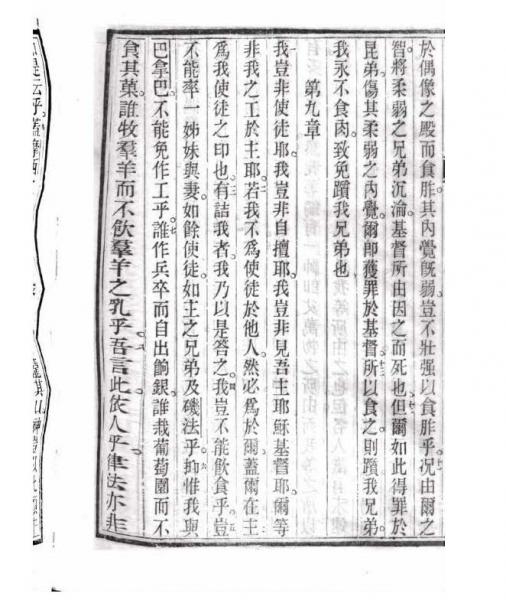 於偶像之殿而食胙其內覺旣弱豈不壯强以食胙乎況由爾之
智將柔弱之兄弟沉淪基督所由因之而死也但爾如此得罪於
昆弟傷其柔弱之內覺爾卽獲罪於基督所以食之則躓我兄弟
我永不食肉致免躓我兄弟也
第九章
我豈非使徒耶我豈非自擅耶我豈非見吾主耶穌基督耶爾等
非我之工於主耶若我不爲使徒於他人然必爲於爾蓋爾在主
爲我使徒之印也有詰我者我乃以是答之我豈不能飲食乎豈
不能率一姊妹與妻如餘使徒如主之兄弟及磯法乎抑惟我與
巴拿巴不能免作工乎誰作兵卒而自出餉銀誰栽葡萄園而不
食其菓誰牧羣羊而不飲羣羊之乳乎吾言此依人乎律法亦非
是云乎蓋